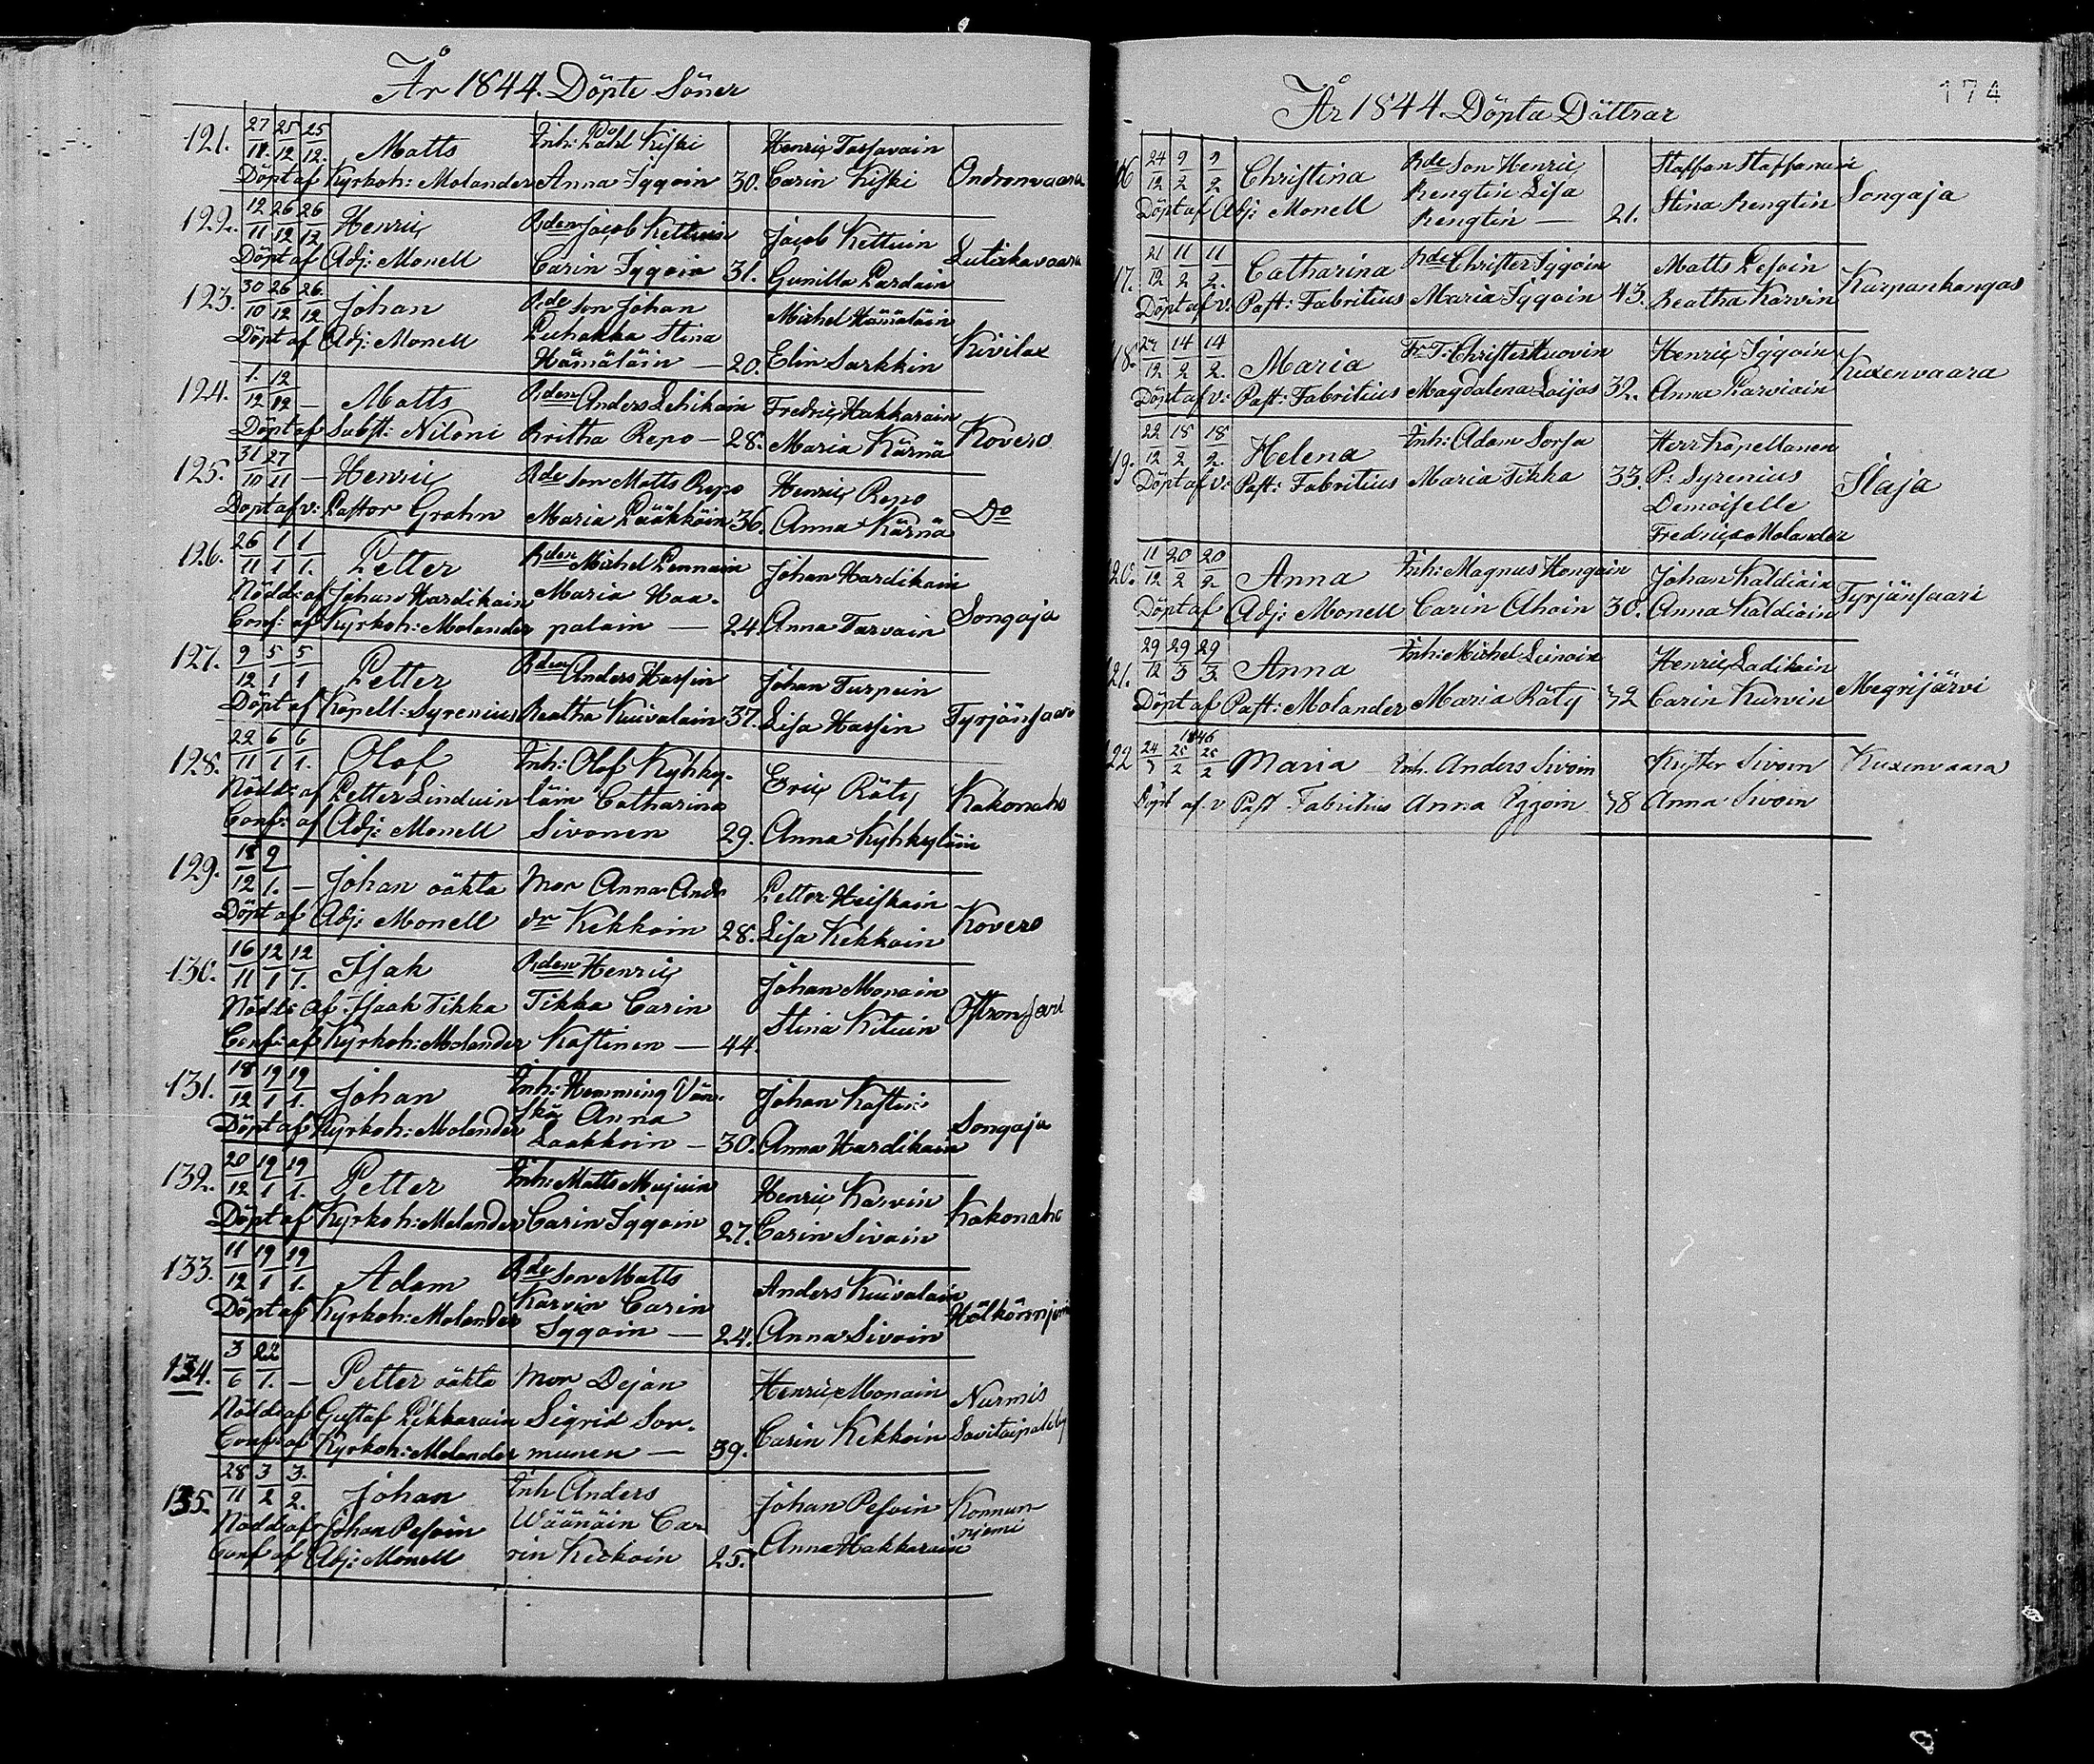 År 1844. Döpte Söner
121. 27/11. 25/12 25/12. Matts Inh: Påhl Kiski Henric Tarsavain
Döpt af Kyrkoh: Molander Anna Iggoin 30. Carin Kiski Ondronvaara
122. 12/11 26/12 26/12 Henric Bden Jacob Kettuin Jacob Kettuin
Döpt af Adj: Monell Carin Iggoin 31. Gunilla Pardain Lutickavaara
123. 30/10 26/12 26/12 Johan Bde Son Johan Michel Hämäläin
Döpt af Adj: Monell Puhakka Stina
Hämäläin — 20. Elin Sarkkin Kivilax
124. 1/12 12/12 — Matts Bden Anders Lehikoin Fredric Hakkarain
Döpt af Subst: Niloni Britha Repo — 28. Maria Kärnä Kovero
125. 31/10 27/11 — Henric Bde Son Matts Repo Henric Repo
Döpt af v: Pastor Grahn Maria Pääkköin 36. Anna Kärnä Do
126. 26/11 1/1 1/1. Petter Bden Michel Pennain Johan Hardikain
Nödd: af Johan Hardikain Maria Haa-
Conf: af Kyrkoh: Molander palain — 24. Anna Tarvain Songaja
127. 9/12 5/1 5/1 Petter Bden Anders Hassin Johan Turpein
Döpt af Kapell: Syrenius Beatha Kuivalain 37. Lisa Hassin Tyrjänsaari
128. 22/11 6/1 6/1. Olof Inh: Olof Kyhky- Eric Räty
Nödd: af Petter Linduin läin Catharina Kakonaho
Conf: af Adj: Monell Sivonen 29. Anna Kyhkyläin
129. 18/12 9/1. — Johan oäkta Mor Anna And- Petter Heiskain
Döpt af Adj: Monell dr Kekkoin 28. Lisa Kekkoin Kovero
130. 16/11 12/1 12/1. Isak Bden Henric Johan Monoin
Nödd: af Isaak Tikka Tikka Carin Stina Kituin
Conf: af Kyrkoh: Molander Kastinen — 44.
131. 18/12 19/1 19/1. Johan Inh: Hemming Vän- Johan Kastin
Döpt af Kyrkoh: Molander skä Anna Songaja
Laakkoin — 30. Anna Hardikain
132. 20/12 19/1 19/1. Petter Inh: Matts Mujuin Henric Karvin
Döpt af Kyrkoh: Molander Carin Iggoin 27. Carin Sivoin Kakonaho
133. 11/12 19/1 19/1. Adam Bde Son Matts Anders Kuivalain
Döpt af Kyrkoh: Molander Karvin Carin Hölkönnjemi
Iggoin — 24. Anna Sivoin
134. 3/6 22/1. — Petter oäkta Mor Dejan Henric Monain Nurmis
Nödd: af Gustaf Pikkarain Sigrid Sor- Savikaipale by
Conf: af Kyrkoh: Molander munen — 39. Carin Kekkoin
135. 28/11 3/2 3/2. Johan Inh Anders Johan Pesoin Konnun
Nödd: af Johan Pesoin Wäänäin Ca- njemi
Conf af Adj: Monell rin Keckoin 25. Anna Hakkarain
174
År 1844. Döpta Döttrar
16 24/12 9/2 9/2 Christina Bde Son Henric Staffan Staffanain
Döpt af Adj: Monell Rengtin Lisa Stina Rengtin Songaja
Rengtin — 21.
17. 21/12 11/2 11/2. Catharina Bde Christer Iggoin Matts Pesoin
Döpt af v: Past: Fabritius Maria Iggoin 43. Beatha Karvin Karpankangas
18. 27/12 14/2 14/2. Maria Christer Kuovin Henric Iggoin
Döpt af v: Past: Fabritius Magdalena Laijas 32. Anna Karviain Kuxenvaara
19. 22/12 18/2 18/2. Helena Inh: Adam Sorsa Herr Kapellanen
Döpt af v: Past: Fabritius Maria Tikka 33. P: Syrenius Ilaja
Demoiselle
Fredrica Molander
120. 11/12 20/2 20/2 Anna Inh: Magnus Hongain Johan Kaldiain
Döpt af Adj: Monell Carin Ahoin 30. Anna Kaldiain Tyrjänsaari
21. 29/12 29/3 29/3 Anna Inh: Michel Leinoin Henric Ladikain
Döpt af Past: Molander Maria Räty 32 Carin Kurvin Megrijärvi
1846
122 24/3 25/2 25/2 Maria Inh. Anders Sivoin Kuster Sivoin Kuxenvaara
Döpt af v Past Fabritius Anna Iggoin 38 Anna Sivoin